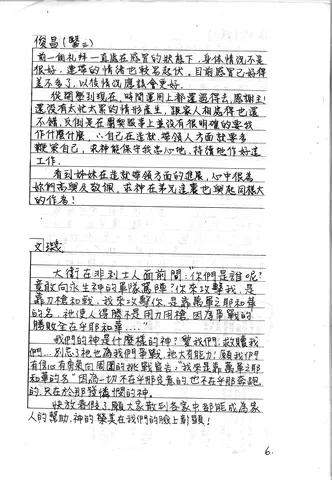 俊昌(醫二)
前一個礼拜一直處在感冒的狀態下,身体情況不是
很好,連帶的情緒也較為起伏。目前感冒已好得
差不多了,以後情況應該會更好。
從開學到現在,時間運用上都還過得去,感謝主!
還沒有太他太累的情形產生,跟家人相處得也還
不錯,反倒是在團契服事上並沒有很明確的要我
作什麼什麼,自己在造就帶領人方面就要多
鞭策自己,求神能保守我忠心地、持續地作好這
工作。
看到姊妹在造就帶領方面的進展,心中很為
妳們高興及敬佩,求神在弟兄這裏也興起同樣大
的作為!
文瑛
大衛在非利士人面前問:"你們是誰呢?
竟敢向永生神的軍隊罵陣?你來攻擊我,是
靠刀槍和戟,我來攻擊你,是靠萬軍之耶和華
的名。祂使人得勝不是用刀用槍,因為爭戰的
勝敗全在乎耶和華...."
我們的神是什麼樣的神?愛我們,救贖我
們...別忘了祂也為我們爭戰,祂大有能力!願我們
有信心有勇氣向周圍的挑戰宣告,"我來是靠萬軍之耶
和華的名"因為一切不在乎那定意的,也不在乎那奔跑
的,只在於那發憐憫的神。
快放暑假了,願大家散到各家中都能成為家
人的幫助,神的榮美在我們的臉上彰顯!
6.